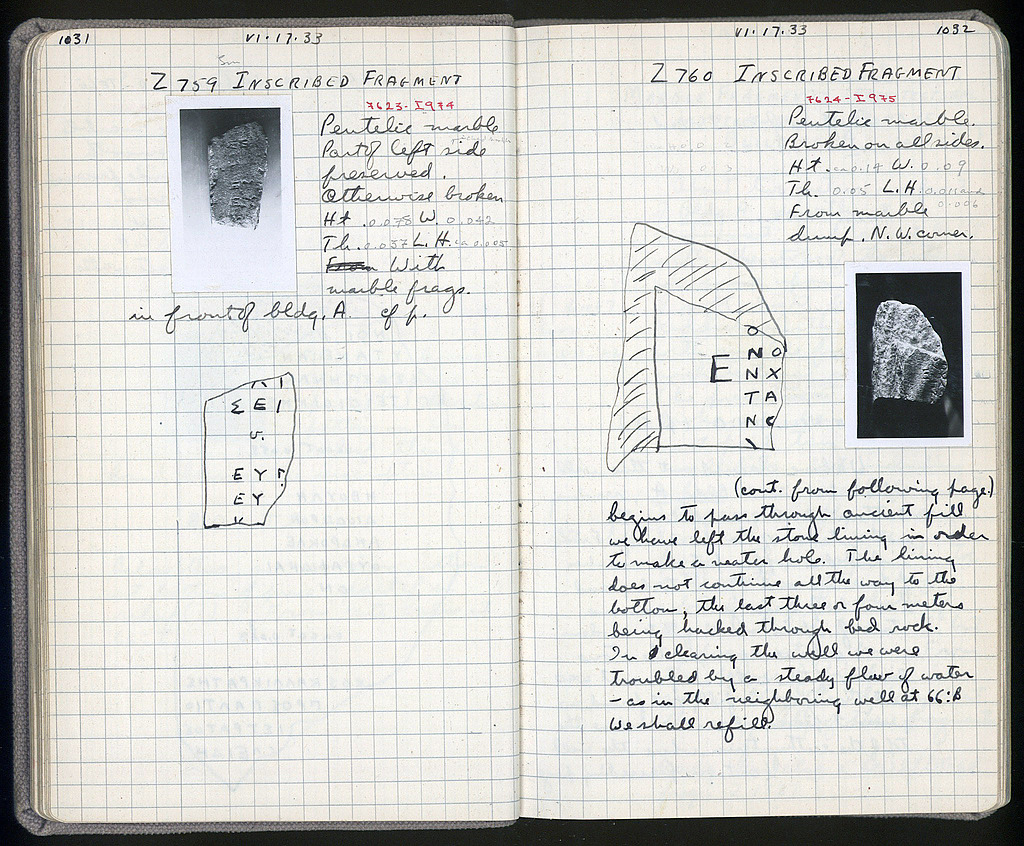 1031
VI·17·33
Z 759 INSCRIBED FRAGMENT
7623-I974
Pentelic marble
Part of left side
preserved.
Otherwise broken
Ht. 0.078 W. 0.042
Th. 0.037 L.H. ca 0.005
From With
marble frags.
in front of bldg. A. cf p.
Σ E I
v.
E Y Γ
E Y
VI·17·33
1032
Z 760 INSCRIBED FRAGMENT
7624-I975
Pentelic marble.
Broken on all sides.
Ht. ca 0.14 W. 0.09
Th. 0.05 L.H. 0.011 and
0.006
From marble
dump. N.W. corner.
O
N O
E N X
T A
N C
\
(cont. from following page.)
begins to pass through ancient fill
we have left the stone lining in order
to make a neater hole. The lining
does not continue all the way to the
bottom, the last three or four meters
being hacked through bed rock.
In clearing the well we were
troubled by a steady flow of water
- as in the neighboring well at 66:B
We shall refill.